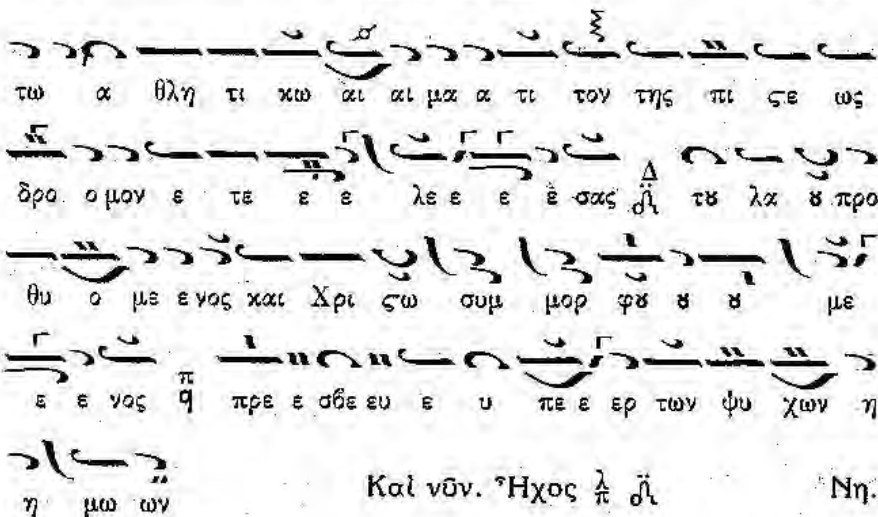 τω α θλη τι κω αι αι μα α τι τον της πι ϛε ως
δρο ο μον ε τε ε ε λε ε ε ε σας Δ τȣ λα ȣ προ
θυ ο με ε νος και Χρι ϛω συμ μορ φȣ ȣ ȣ με
ε ε νος π q πρε ε σβε ευ ε υ πε ε ερ των ψυ χων η
η μω ων Καὶ νῦν. Ἦχος λ π Νη.